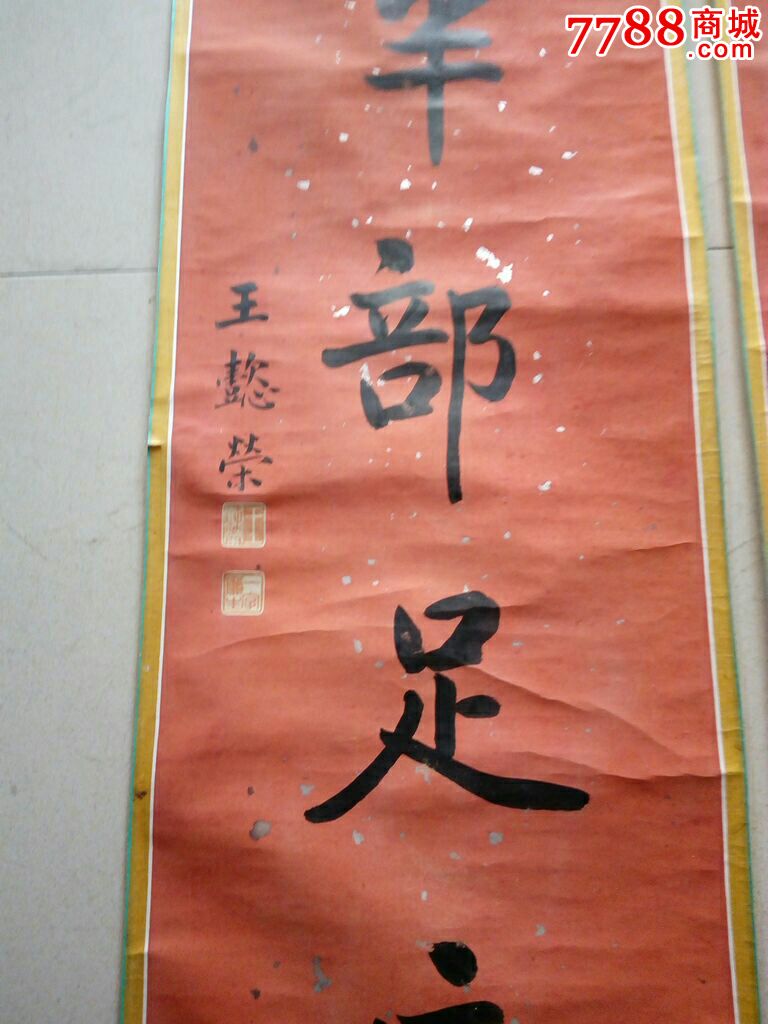 7788商城
.com
半部足
王懿榮